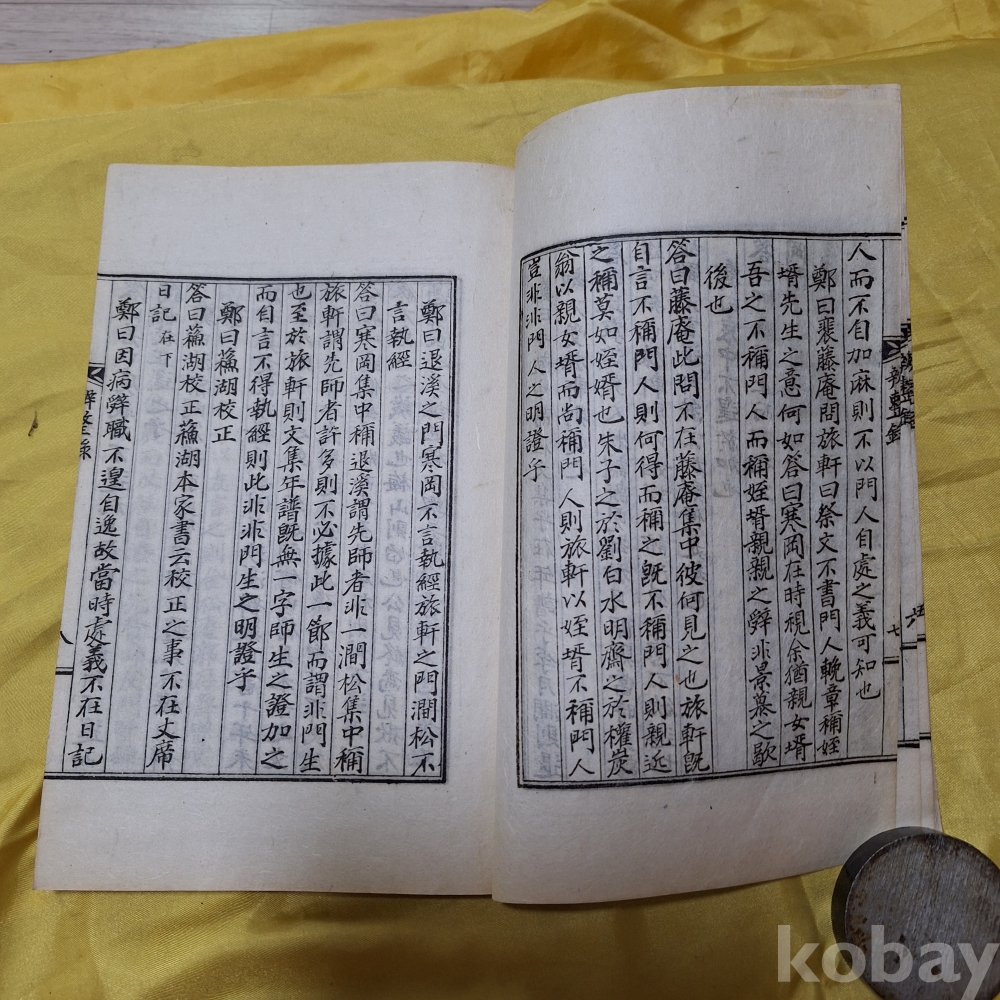 人而不自加麻則不以門人自處之義可知也
鄭曰裵藤庵問旅軒曰祭文不書門人輓章稱姪
壻先生之意何如答曰寒岡在時視余猶親女壻
吾之不稱門人而稱姪壻親親之辭非景慕之歇
後也
答曰藤庵此問不在藤庵集中彼何見之也旅軒旣
自言不稱門人則何得而稱之旣不稱門人則親近
之稱莫如姪壻也朱子之於劉白水明齋之於權炭
翁以親女壻而尙稱門人則旅軒以姪壻不稱門人
豈非非門人之明證乎
七
鄭曰退溪之門寒岡不言執經旅軒之門澗松不
言執經
答曰寒岡集中稱退溪謂先師者非一澗松集中稱
旅軒謂先師者許多則不必據此一節而謂非門生
也至於旅軒則文集年譜旣無一字師生之證加之
而自言不得執經則此非非門生之明證乎
鄭曰蘓湖校正
答曰蘓湖校正蘓湖本家書云校正之事不在丈席
日記在下
鄭曰因病辭職不遑自逸故當時處義不在日記
辨錄
八
kobay